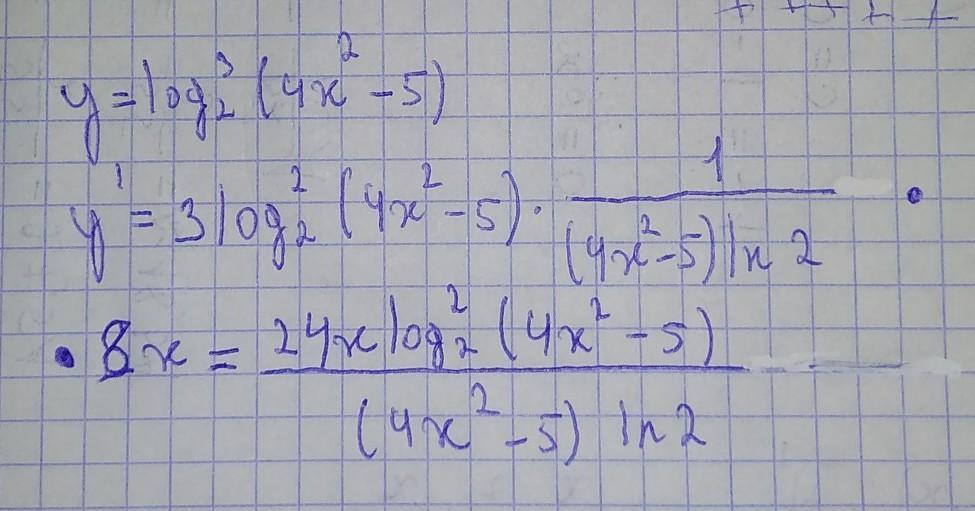 y = log₂³ (4x² - 5)
y' = 3 log₂² (4x² - 5) · 1 / ((4x² - 5) ln 2) ·
· 8x = 24x log₂² (4x² - 5) / ((4x² - 5) ln 2)